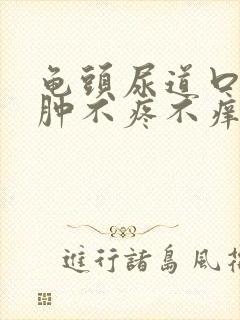 龟頭尿道口
肿不疼不痒
進行諸島風